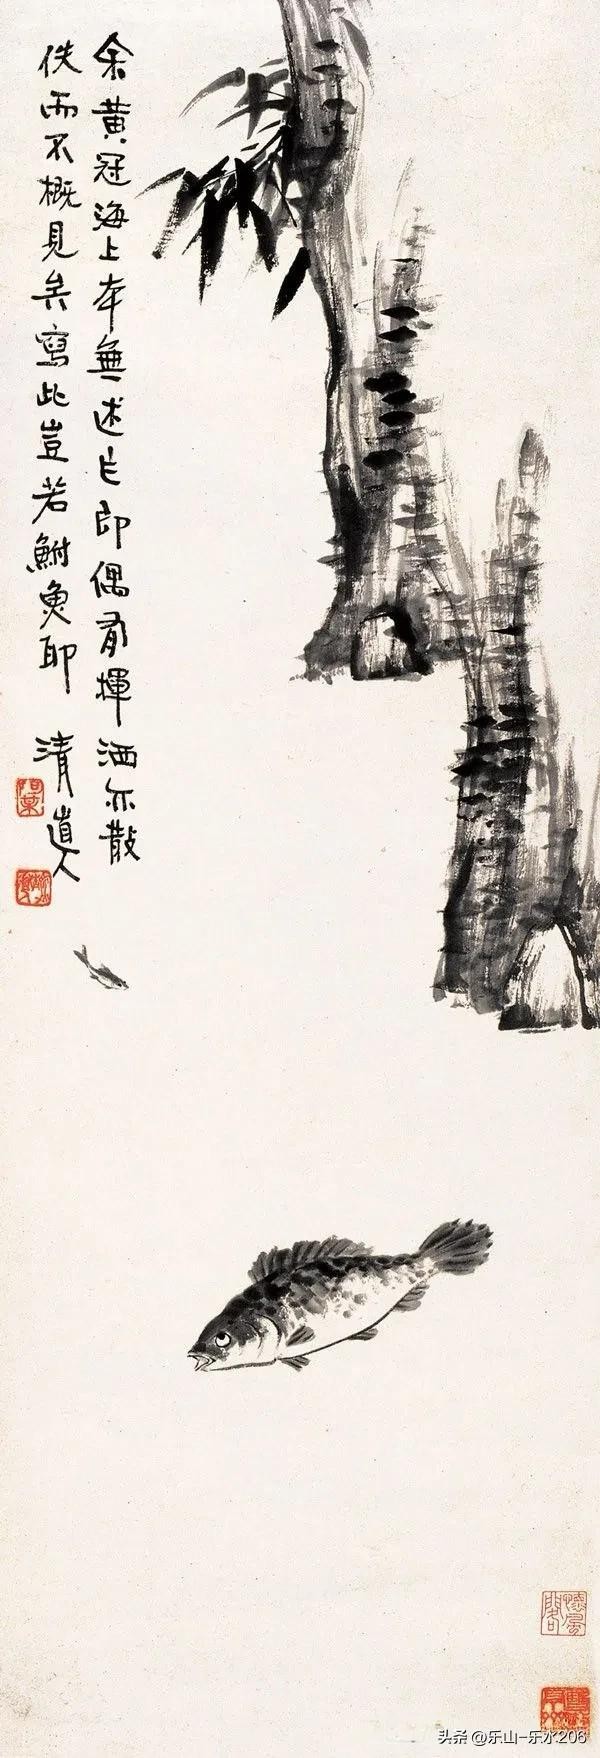 余黄冠海上本無述乍即偶為揮洒亦散
佚而不概見矣寫此豈若鮒魚耶
清道人
头条 @乐山-乐水206